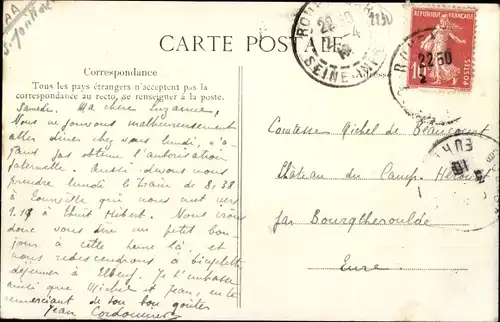 AA
S. Jonille
CARTE POSTALE
Correspondance
Tous les pays étrangers n'acceptent pas la
correspondance au recto, se renseigner à la poste.
Adresse
Samedi. Ma chère Suzanne,
Nous ne pouvons malheureusement
aller dîner chez vous lundi, n'a-
yant pas obtenu l'autorisation
paternelle. Aussi devons nous
prendre lundi le train de 8.38
à Tourville qui nous met vers
1.19 à Thuit Hébert. Nous irons
donc vous dire un petit bon-
jour à cette heure là, et
nous redescendrons à bicyclette
déjeuner à Elbeuf. Je t'embrasse
ainsi que Michel et Jean, en te
remerciant de ton bon goûter
Jean Cordonnier
Comtesse Michel de Beaucourt
Château du Camp
par Bourgtheroulde
Eure
RÉPUBLIQUE FRANÇAISE
10
POSTES
22 50
SEINE
2230
22 50
EURE